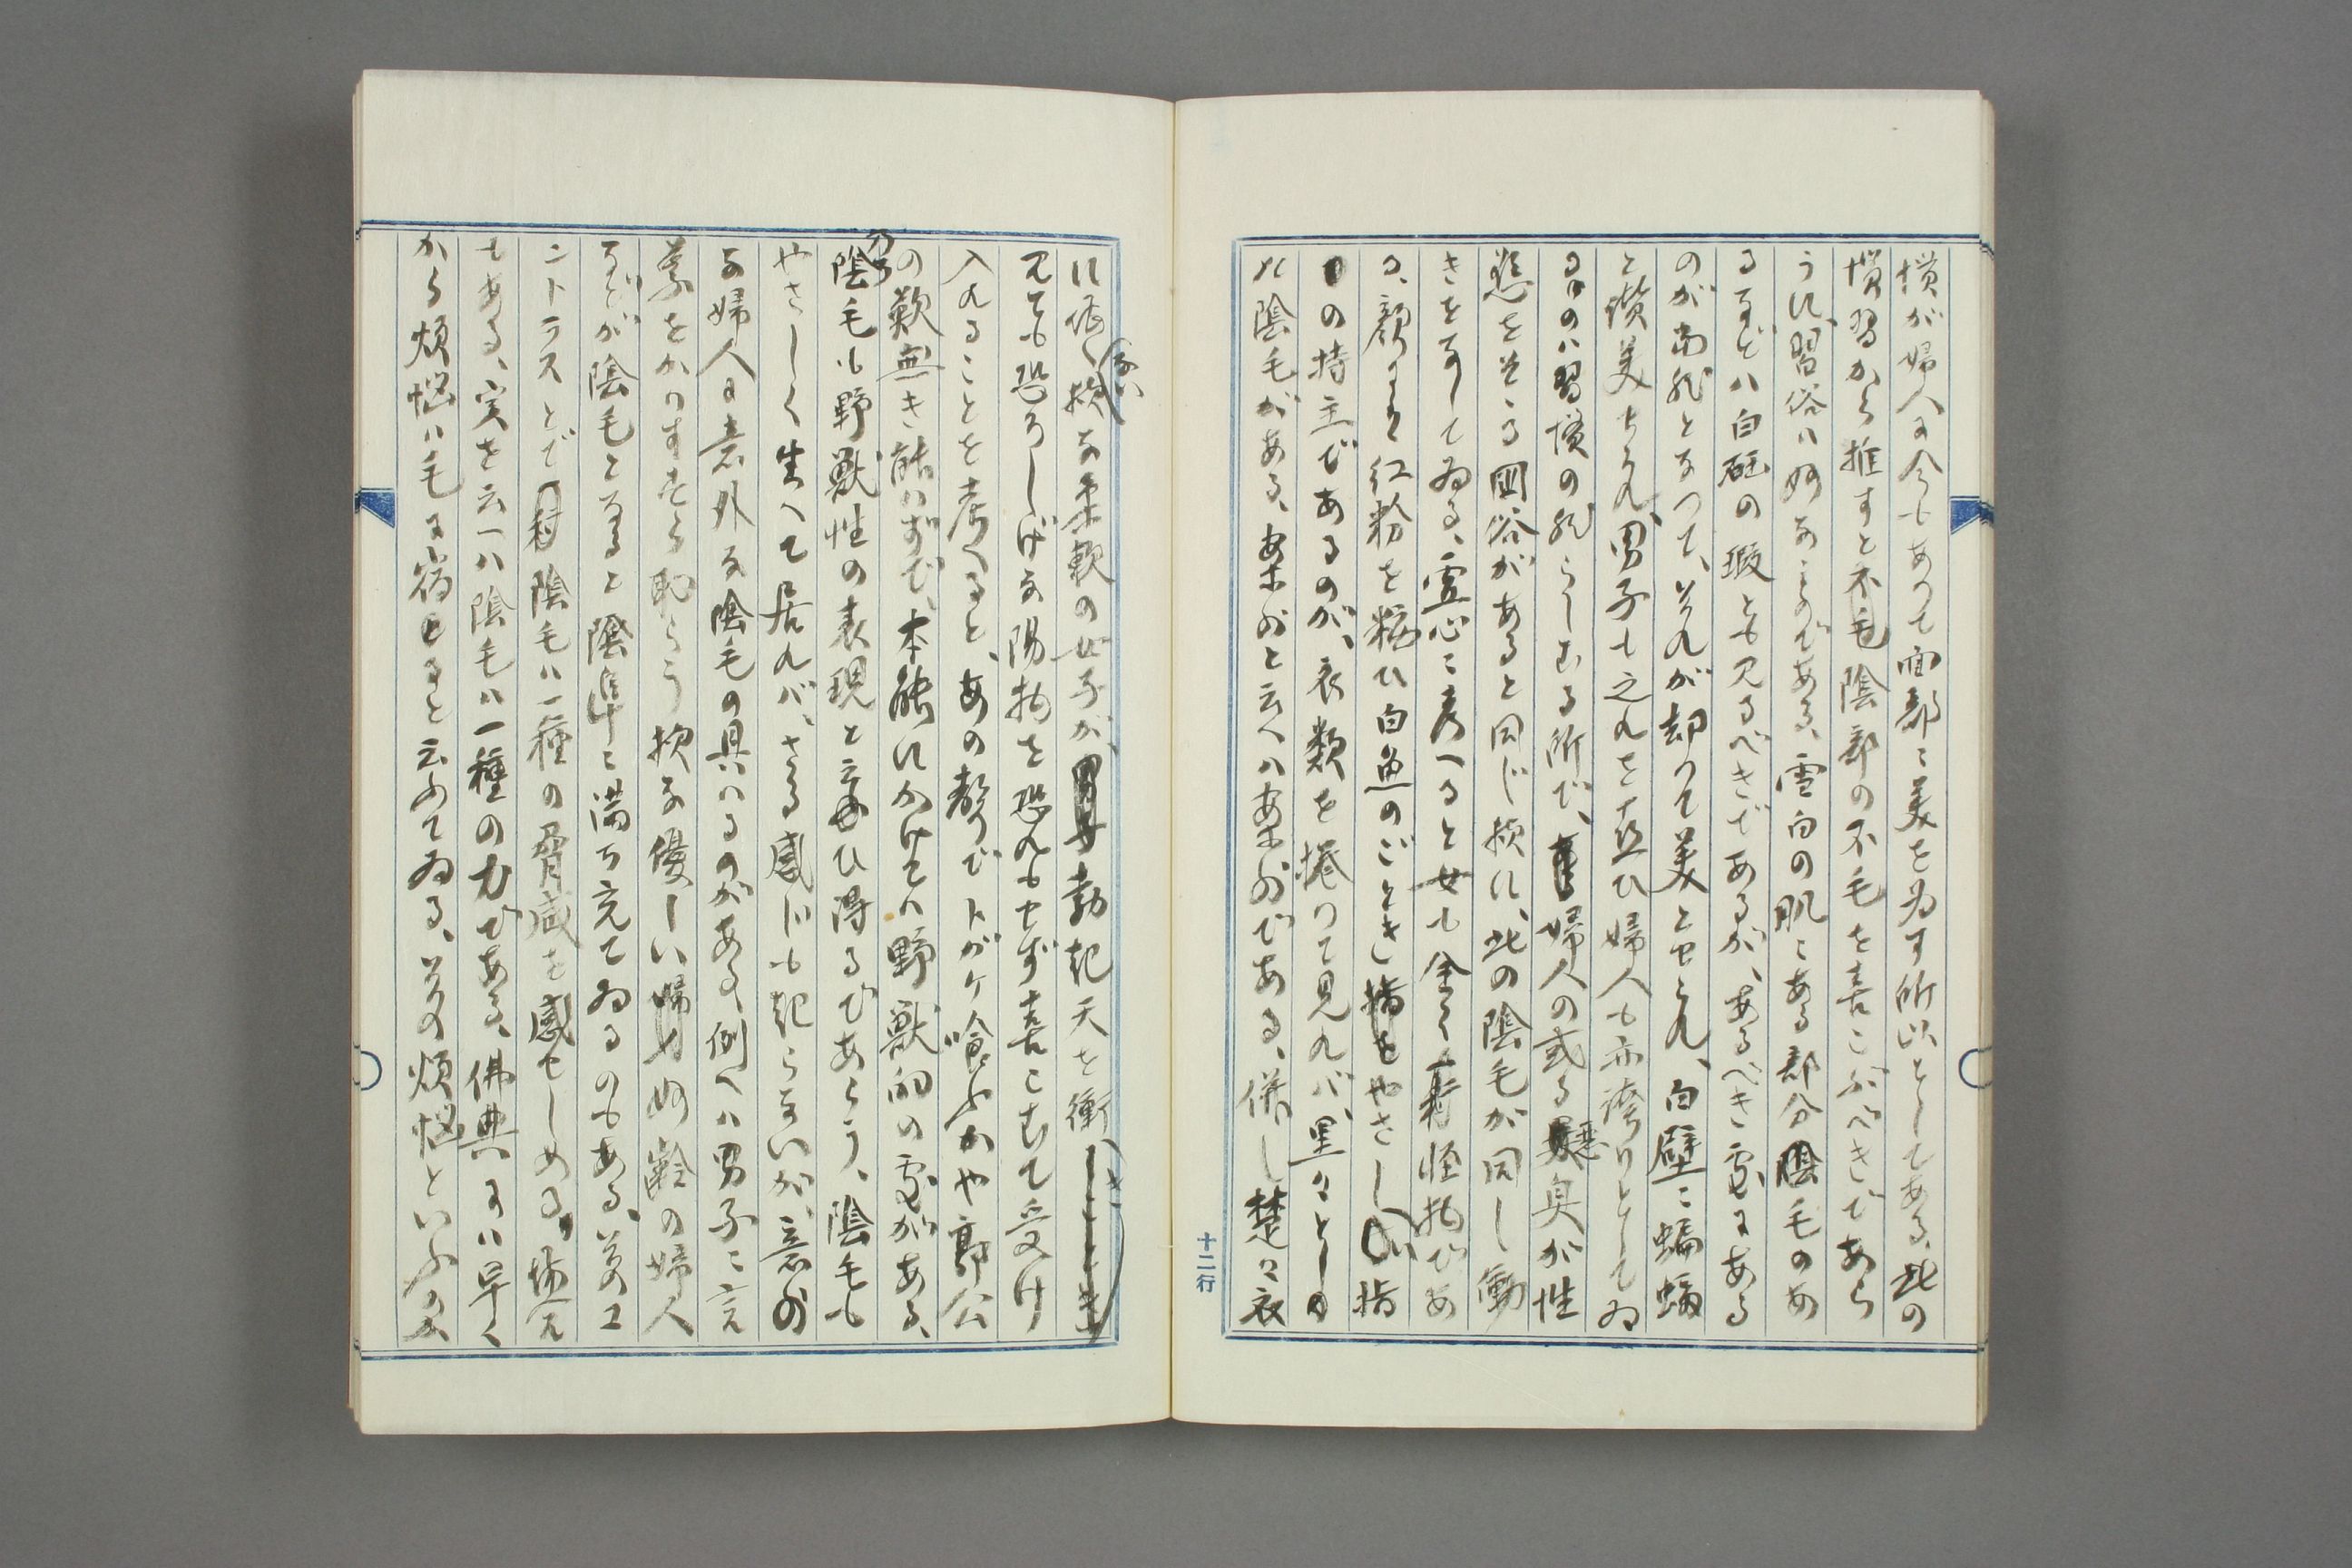 慣が婦人に今もあつて面部に美を為す所以としてある、此の
慣習から推すと不毛陰部の不毛を喜こぶべきであら
うに、習俗は妙なものである、雪白の肌にある部分陰毛のあ
るなどハ白砡の瑕とも見るべきであるが、あるべき処にある
のが当然となつて、それが却つて美とせられ、白壁に蝙蝠
と讃美せられ、男子も之れを喜ひ婦人も亦誇りとしてゐ
るのハ習慣の然らしむる所で、婦人の或る悪臭が性
慾をそゝる国俗があると同じ様に、此の陰毛が同し働
きをなしてゐる、虚心に考へると女も全く怪物であ
る、顔に紅粉を粧ひ白魚のごときやさしい指
の持主であるのが、衣類を捲りて見れバ、黒々とし
た陰毛がある、案外と云へハ案外である、併し楚々衣
に堪へない様な柔軟の女子が、勃起天を衝くき
見ても恐ろしげな陽物を恐れもせず喜こむて受け
入れることを考へると、あの声でトガケ喰ふかや郭公
の歎無き能はずで、本能にかけてハ野獣的の処がある、
乃ち陰毛も野獣性の表現と云ひ得るであらう、陰毛も
やさしく生へて居れバ、さる感じも起らないが、意外
な婦人に意外な陰毛の具ハるのがある、例へハ男子に言
葉をかりすら恥らう様な優しい婦妙齢の婦人
などが陰毛となると陰阜に満ち亢てゐるのもある、其のコ
ントラスとで陰毛ハ一種の脅威を感せしめる、場合
もある、実を云ヘハ陰毛ハ一種の力である、佛典にハ早く
から煩悩ハ毛に宿ると云ふてゐる、其の煩悩といふのが